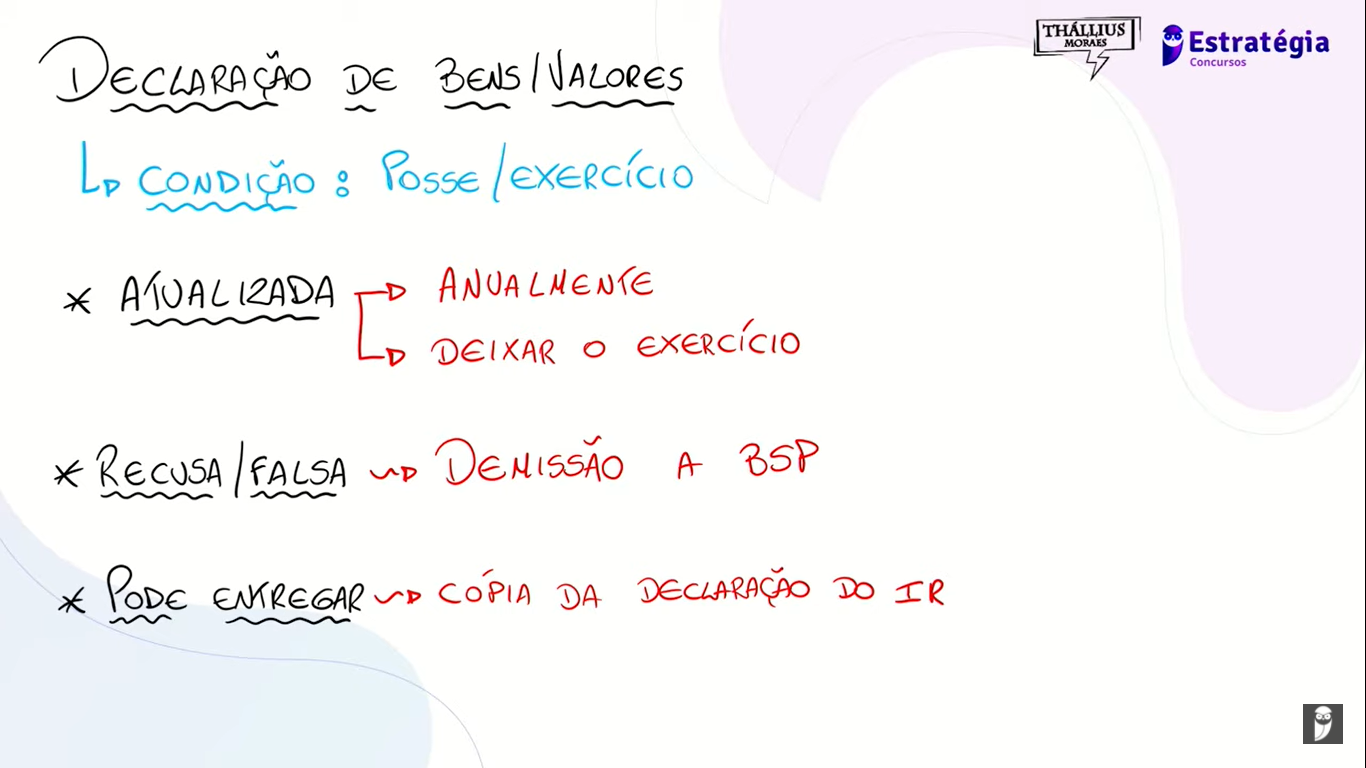 THÁLLIUS
MORAES
Estratégia
Concursos
DECLARAÇÃO DE BENS/VALORES
CONDIÇÃO: POSSE/EXERCÍCIO
* ATUALIZADA ANUALMENTE
DEIXAR O EXERCÍCIO
* RECUSA/FALSA DEMISSÃO A BSP
* PODE ENTREGAR CÓPIA DA DECLARAÇÃO DO IR